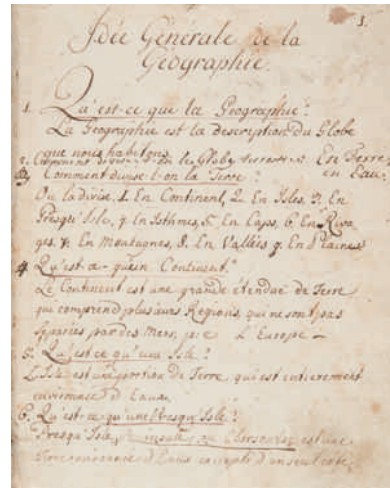 1.
Idée Générale de la
Géographie.
1. Qu'est-ce que la Géographie?
La Géographie est la description du Globe
que nous habitons.
2. Comment divise-t-on le Globe terrestre. En Terre
3. Comment divise-t-on la Terre? en Eau.
On la divise, 1. En Continent, 2. En Isles, 3. En
Presqu'Isle, 4. En Isthmes, 5. En Caps, 6. En Riva
ges, 7. En Montagnes, 8. En Vallées 9. En Plaines
4. Qu'est-ce-qu'un Continent?
Le Continent est une grande étendue de Terre,
qui comprend plusieurs Regions, qui ne sont pas
séparées par des Mers, p: e: L'Europe —
5. Qu'est ce qu'une Isle?
L'Isle est une portion de Terre, qui est entierement
environnée d'Eaux.
6. Qu'est-ce qu'une Presqu'Isle?
Presqu'Isle, est une
Terre environnée d'Eaux excepté d'un seul coté